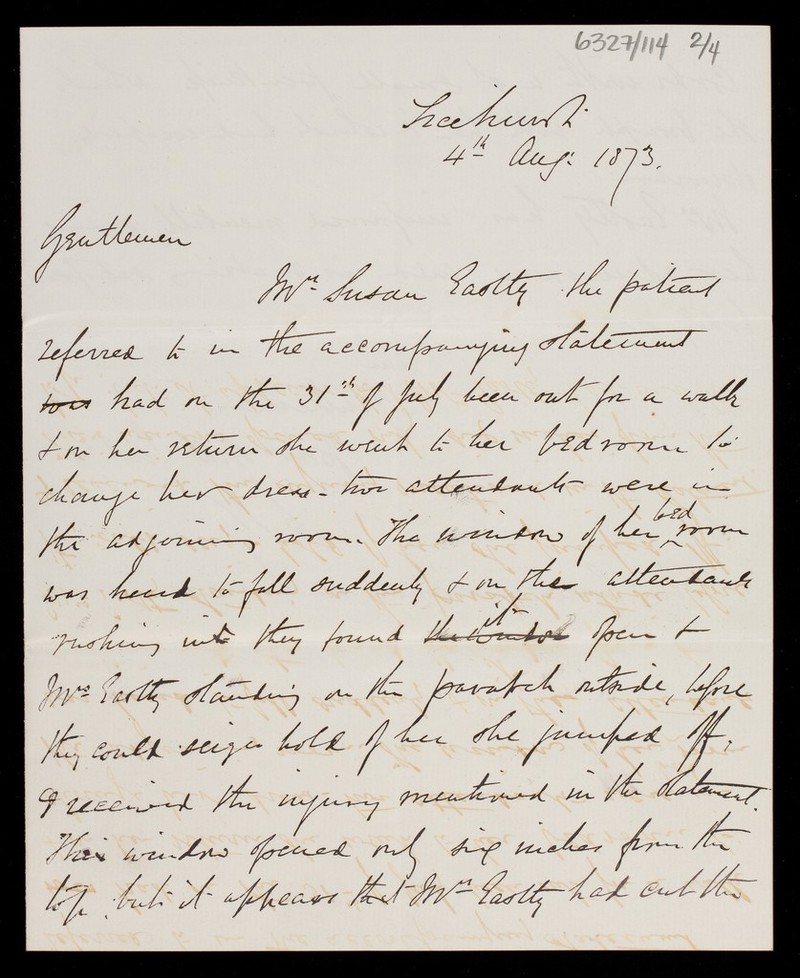 6327/114 2/4
Ticehurst
4th Aug: 1873.
Gentlemen
Mrs Susan Eastty the patient
referred to in the accompanying statement
was had on the 31st of July been out for a walk
& on her return she went to her bedroom to
change her dress - two attendants were in
the adjoining room. The window of her bed room
was heard to fall suddenly & on the attendants
rushing in they found the window it open &
Mrs Eastty standing on the parapet outside, before
they could seize hold of her she jumped off,
& received the injury mentioned in the statement.
This window opened only six inches from the
top, but it appears that Mrs Eastty had cut the